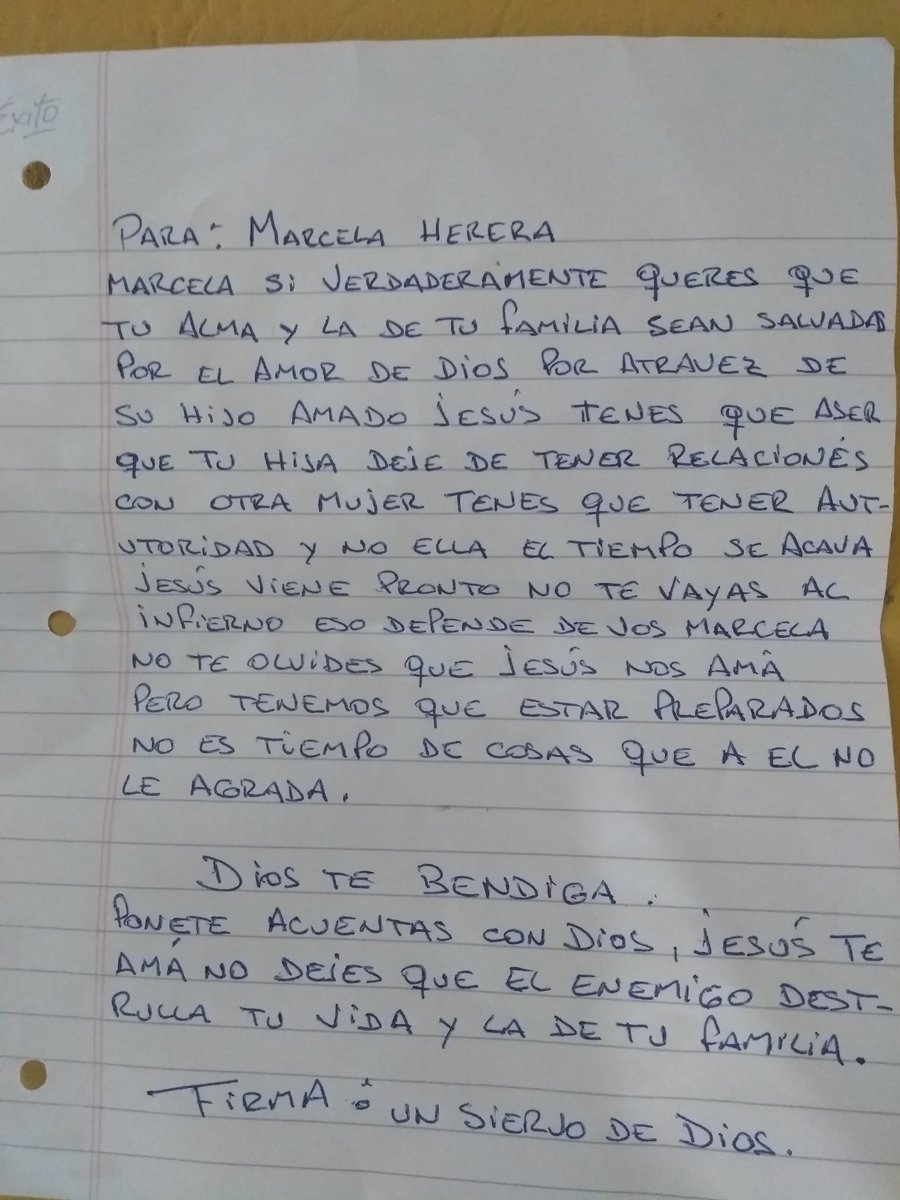 Exito
PARA: MARCELA HERERA
MARCELA Si VERDADERAMENTE QUERES QUE
TU ALMA Y LA DE TU FAMILIA SEAN SALVADAS
POR EL AMOR DE DIOS POR ATRAVEZ DE
SU HIJO AMADO JESÚS TENES QUE ASER
QUE TU HIJA DEJE DE TENER RELACIONÉS
CON OTRA MUJER TENES QUE TENER AUT-
UTORIDAD Y NO ELLA EL TIEMPO SE ACAVA
JESÚS VIENE PRONTO NO TE VAYAS AL
INFIERNO ESO DEPENDE DE VOS MARCELA
NO TE OLVIDES QUE JESÚS NOS AMÂ
PERO TENEMOS QUE ESTAR PREPARADOS
NO ES TIEMPO DE COSAS QUE A EL NO
LE AGRADA.
DIOS TE BENDIGA.
PONETE ACUENTAS CON DIOS, JESÚS TE
AMÁ NO DEJES QUE EL ENEMIGO DEST-
RULLA TU VIDA Y LA DE TU FAMILIA.
FIRMA: UN SIERVO DE DIOS.